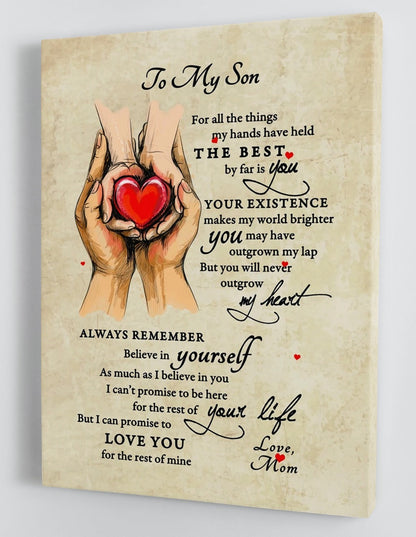 To My Son
For all the things
my hands have held
THE BEST
by far is you
YOUR EXISTENCE
makes my world brighter
you may have
outgrown my lap
But you will never
outgrow
my heart
ALWAYS REMEMBER
Believe in yourself
As much as I believe in you
I can't promise to be here
for the rest of your life
But I can promise to
LOVE YOU
for the rest of mine
Love,
Mom